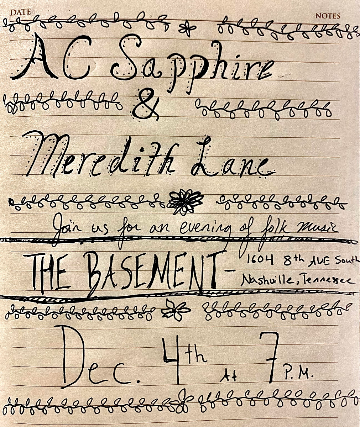 DATE NOTES
AC Sapphire
&
Meredith Lane
Join us for an evening of folk music
THE BASEMENT-
1604 8th AVE South
Nashville, Tennessee
Dec. 4th At 7 P.M.